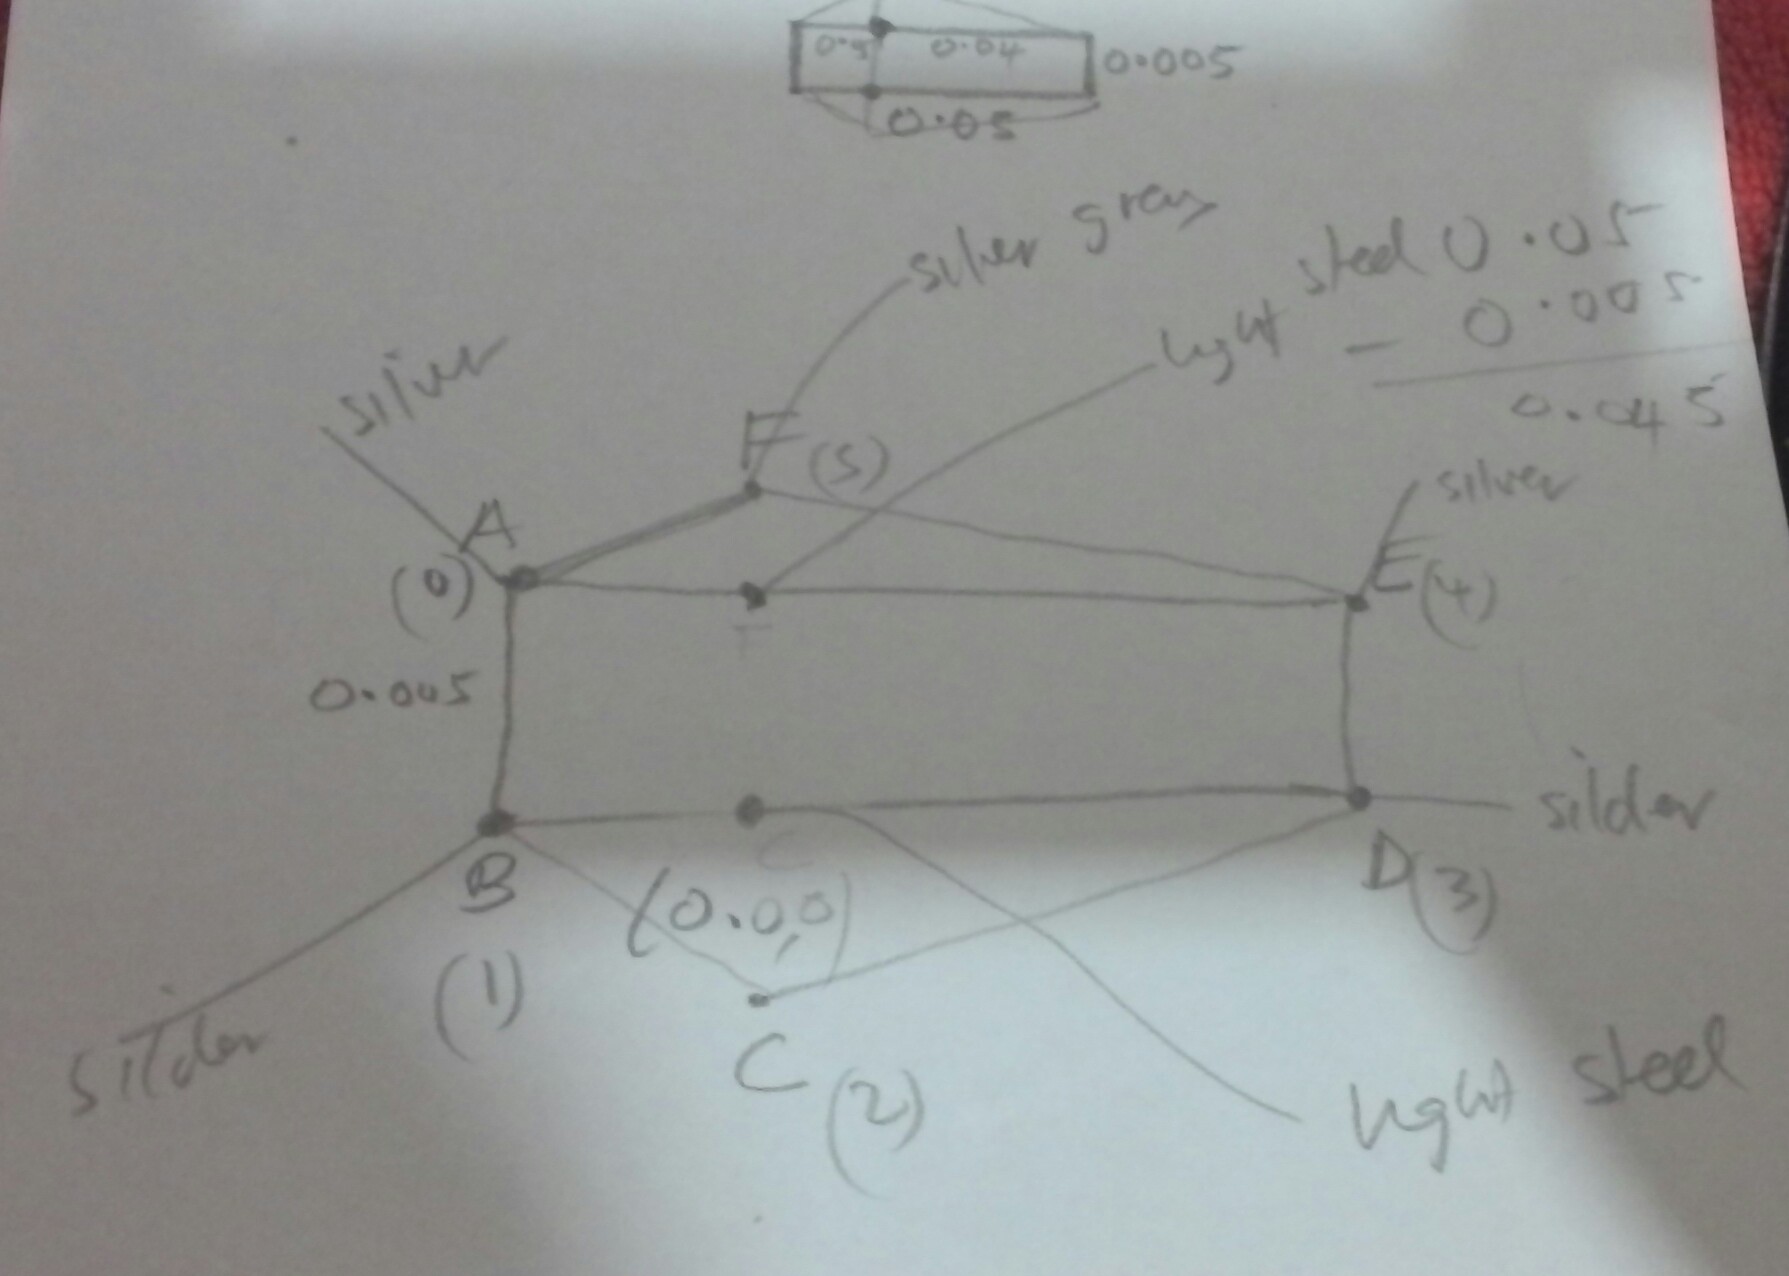 0.5 0.04 0.005
0.05
silver gray
steel 0.05
light - 0.005
0.045
silver
F (5)
silver
A
(0)
E (4)
F
0.005
silder
B
C
(0.0,0)
D (3)
(1)
silder
C
(2)
light steel